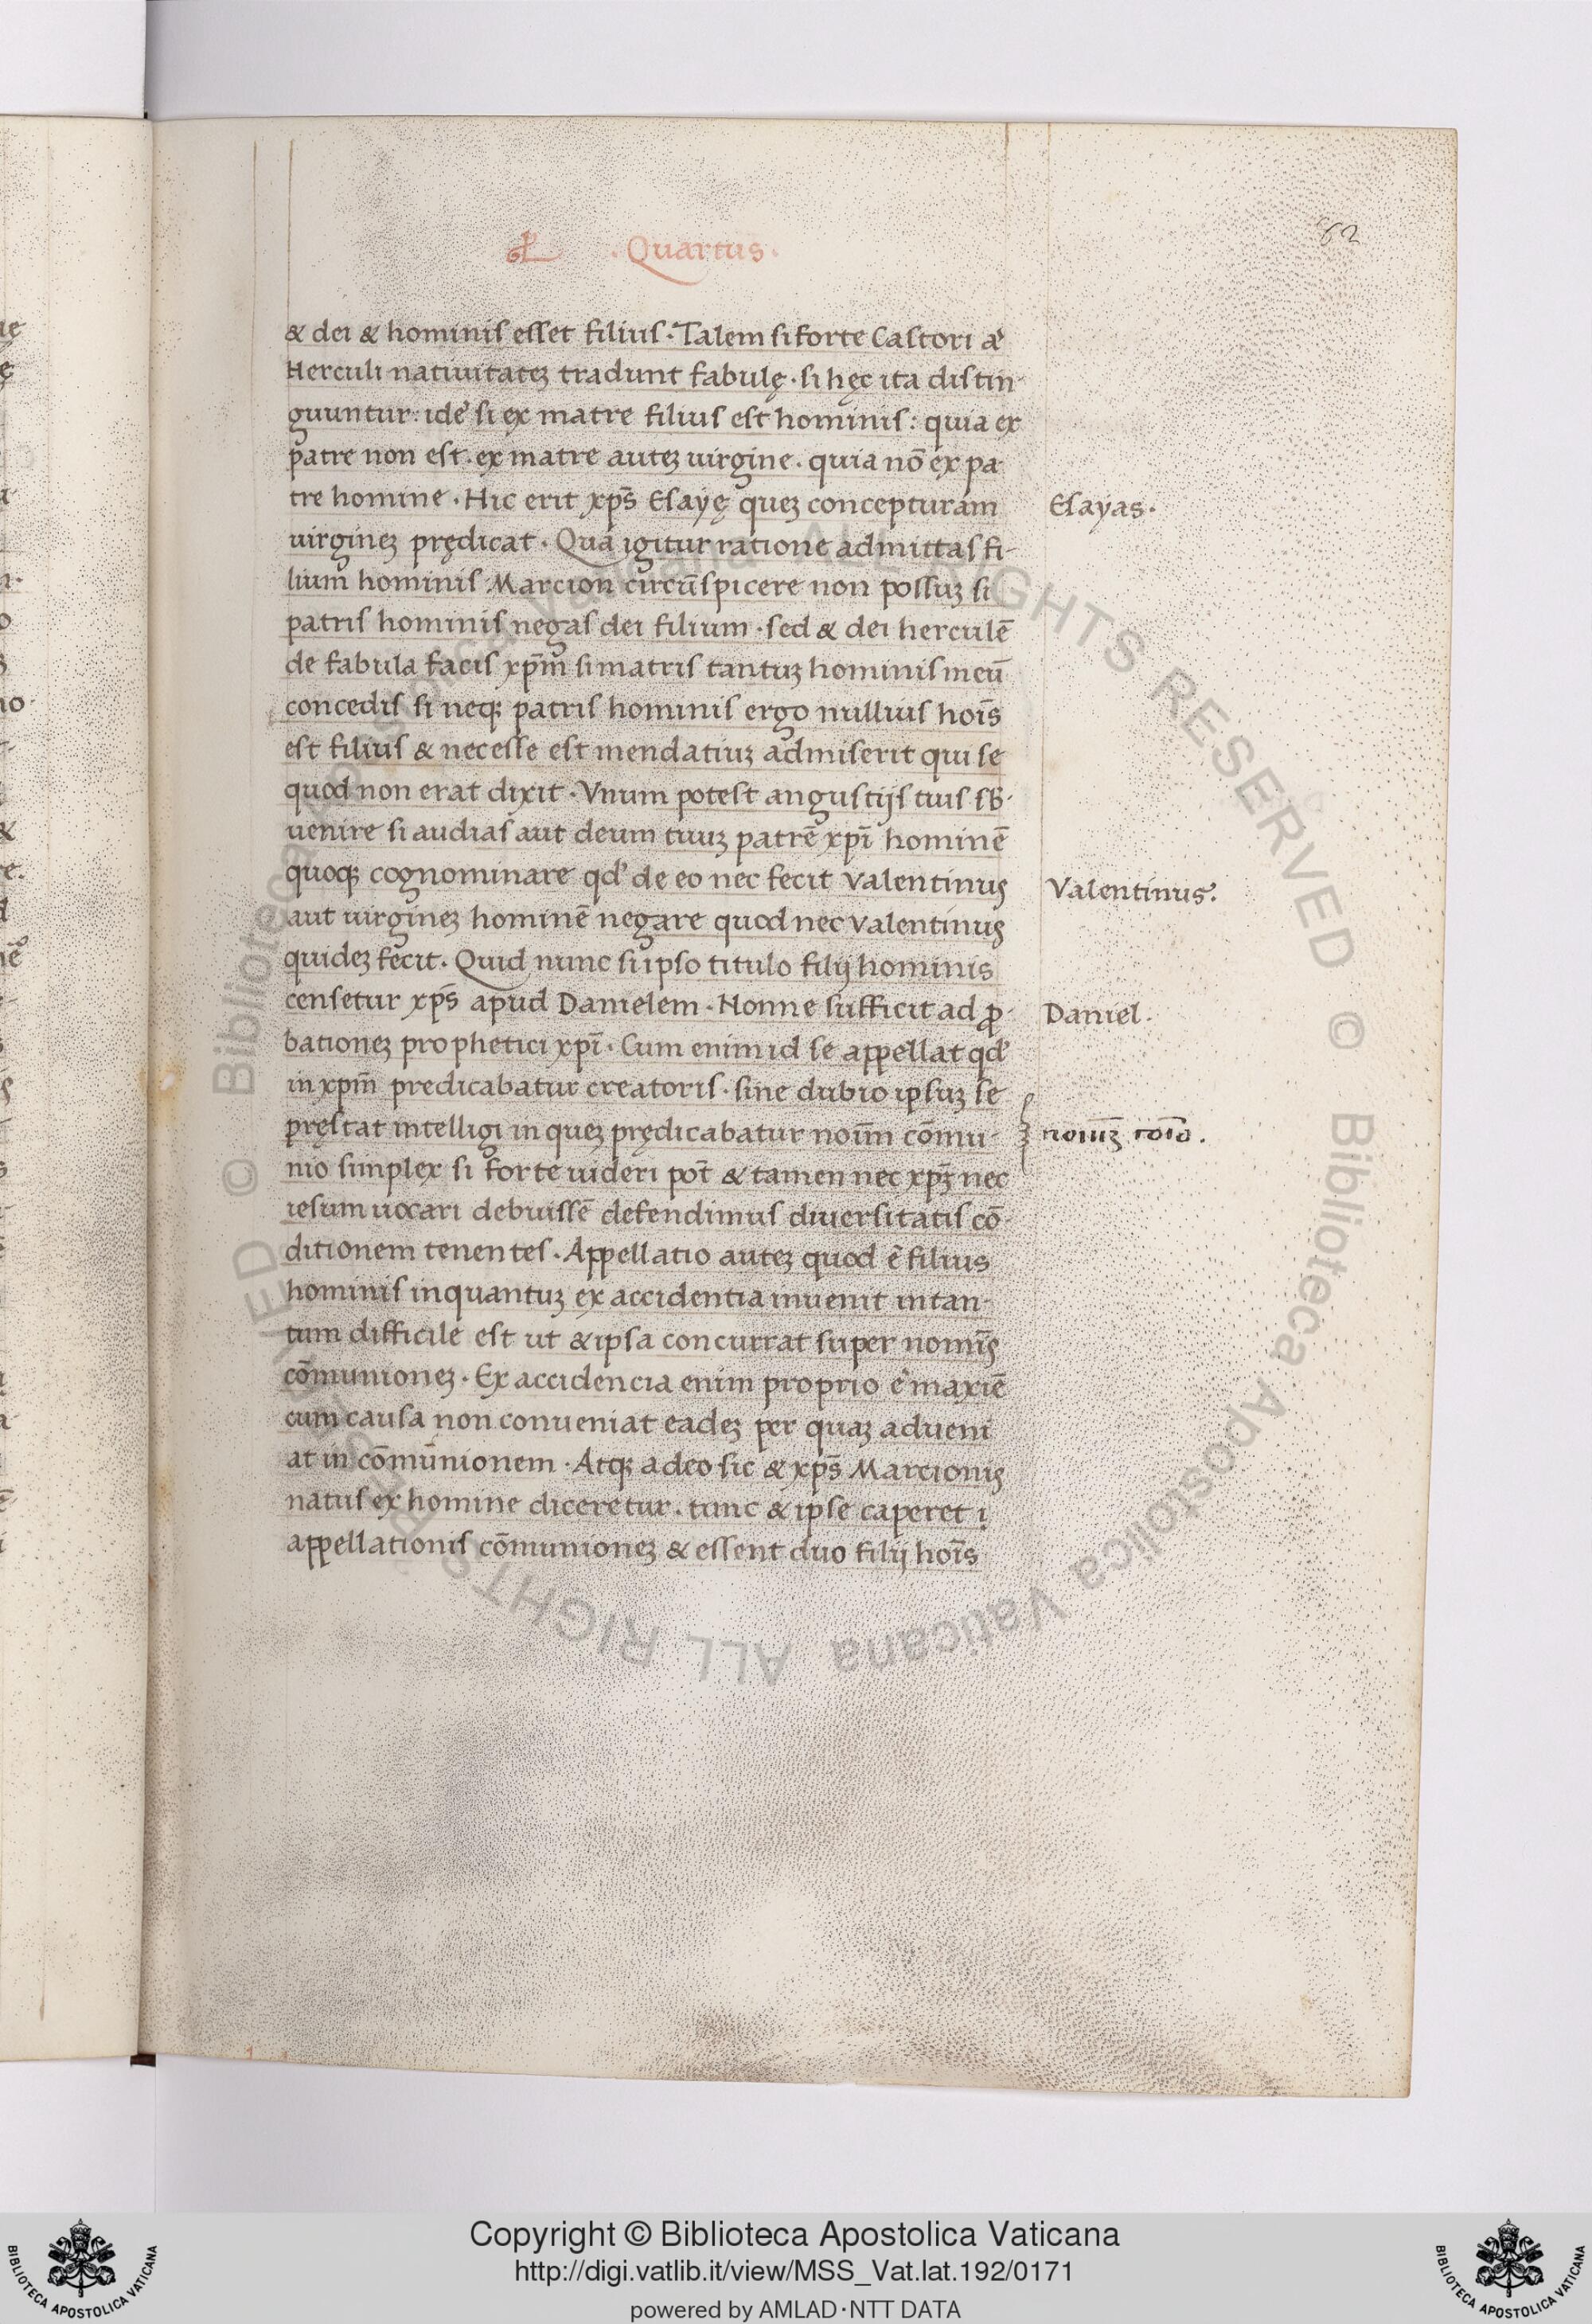 .Quartus.
& dei & hominis esset filius. Talem si forte Castori
Herculi natiuitatez tradunt fabulę. si hęc ita distin-
guuntur: ide si ex matre filius est hominis: quia ex
patre non est. ex matre autez uirgine. quia nō ex pa-
tre homine. Hic erit xp̄s Esayę quez concepturam
Esayas.
uirginez prędicat. Qua igitur ratione admittas fi-
lium hominis Marcion circūspicere non possuz si
patris hominis negas dei filium. sed & dei herculē
de fabula facis xp̄m si matris tantuz hominis meū
concedis si neq; patris hominis ergo nullius hoīs
est filius & necesse est mendatiuz admiserit qui se
quod non erat dixit. Vnum potest angustijs tuis sb-
uenire si audias aut deum tuuz patrē xp̄i hominē
quoq; cognominare qd' de eo nec fecit Valentinus
Valentinus.
aut uirginez hominē negare quod nec Valentinus
quidez fecit. Quid nunc si ipso titulo filij hominis
censetur xp̄s apud Danielem. Nonne sufficit ad ꝓ-
Daniel.
bationez prophetici xp̄i. Cum enim id se appellat qd'
in xp̄m predicabatur creatoris. sine dubio ipsuz se
pręstat intelligi in quez prędicabatur noīm cōmu-
nio simplex si forte uideri pōt & tamen nec xp̄z nec
iesum uocari debuissē defendimus diuersitatis cō-
ditionem tenentes. Appellatio autez quod ē filius
hominis inquantuz ex accidentia inuenit in tan-
tum difficile est ut & ipsa concurrat super nomīs
cōmunionez. Ex accidencia enim proprio ē maxīē
cum causa non conueniat eadez per quaz adueni
at in cōmunionem. Atq; adeo sic & xp̄s Marcionis
natus ex homine diceretur. tunc & ipse caperet ī
appellationis cōmunionez & essent duo filij hoīs
Copyright © Biblioteca Apostolica Vaticana
http://digi.vatlib.it/view/MSS_Vat.lat.192/0171
powered by AMLAD·NTT DATA